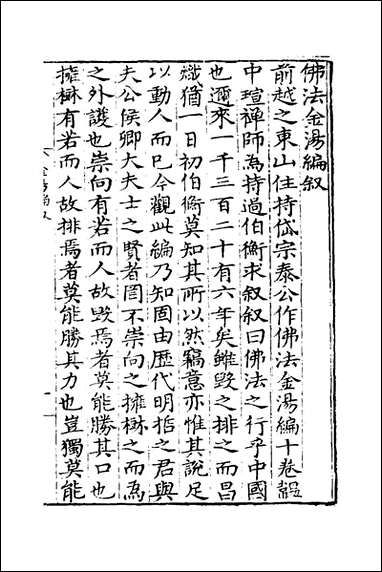 佛法金湯編叙
前越之東山住持岱宗泰公作佛法金湯編十卷
中瑄禪師為持過伯衡求叙叙曰佛法之行乎中國
也邇來一千三百二十有六年矣雖毀之排之而昌
熾猶一日初伯衡莫知其所以然竊意亦惟其說足
以動人而已今觀此編乃知固由歷代明哲之君與
夫公侯卿大夫士之賢者罔不崇向之擁秝之而為
之外護也崇向有若而人故毀焉者莫能勝其口也
擁秝有若而人故排焉者莫能勝其力也豈獨莫能